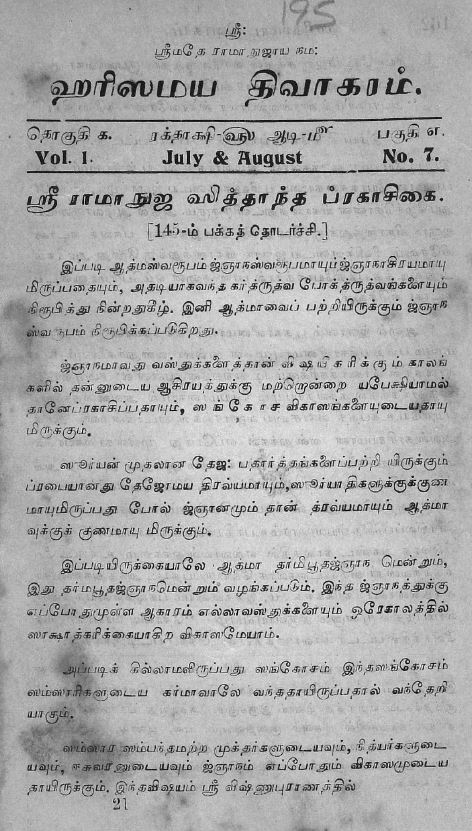 195
ஸ்ரீ:
ஸ்ரீமதே ராமாநுஜாய நம:
ஹரிஸமய திவாகரம்.
தொகுதி க. ரக்தாக்ஷி-௵ ஆடி-௴ பகுதி எ.
Vol. 1. July & August No. 7.
ஸ்ரீ ராமாநுஜ ஸித்தாந்த ப்ரகாசிகை.
[145-ம் பக்கத் தொடர்ச்சி.]
இப்படி ஆத்மஸ்வரூபம் ஜ்ஞாநஸ்வரூபமாயும் ஜ்ஞாநாசிரயமாயு
மிருப்பதையும், அதடியாகவந்த கர்த்ருத்வ போக்த்ருத்வங்களையும்
நிரூபித்து நின்றதுகீழ். இனி ஆத்மாவைப் பற்றியிருக்கும் ஜ்ஞாந
ஸ்வரூபம் நிரூபிக்கப்படுகிறது.
ஜ்ஞாநமாவது வஸ்துக்களைத்தான் விஷயீகரிக்கும் காலங்
களில் தன்னுடைய ஆசிரயத்துக்கு மற்றொன்றை யபேக்ஷியாமல்
தானேப்ரகாசிப்பதாயும், ஸங்கோச விகாஸங்களையுடையதாயு
மிருக்கும்.
ஸூர்யன் முதலான தேஜ: பதார்த்தங்களைப்பற்றி யிருக்கும்
ப்ரபையானது தேஜோமய திரவ்யமாயும், ஸூர்யாதிகளுக்குக்குண
மாயுமிருப்பது போல் ஜ்ஞானமும் தான் த்ரவ்யமாயும் ஆத்மா
வுக்குக் குணமாயு மிருக்கும்.
இப்படியிருக்கையாலே ஆத்மா தர்மிபூதஜ்ஞாந மென்றும்,
இது தர்மபூதஜ்ஞாநமென்றும் வழங்கப்படும். இந்த ஜ்ஞாநத்துக்கு
எப்போதுமுள்ள ஆகாரம் எல்லாவஸ்துக்களையும் ஒரேகாலத்தில்
ஸாக்ஷாத்கரிக்கையாகிற விகாஸமேயாம்.
அப்படிக் கில்லாமலிருப்பது ஸங்கோசம் இந்தஸங்கோசம்
ஸம்ஸாரிகளுடைய கர்மாவாலே வந்ததாயிருப்பதால் வந்தேறி
யாகும்.
ஸம்ஸார ஸம்பந்தமற்ற முக்தர்களுடையவும், நித்யர்களுடை
யவும், ஈசுவரனுடையவும் ஜ்ஞாநம் எப்போதும் விகாஸமுடைய
தாயிருக்கும். இந்தவிஷயம் ஸ்ரீ விஷ்ணுபுராணத்தில்
21